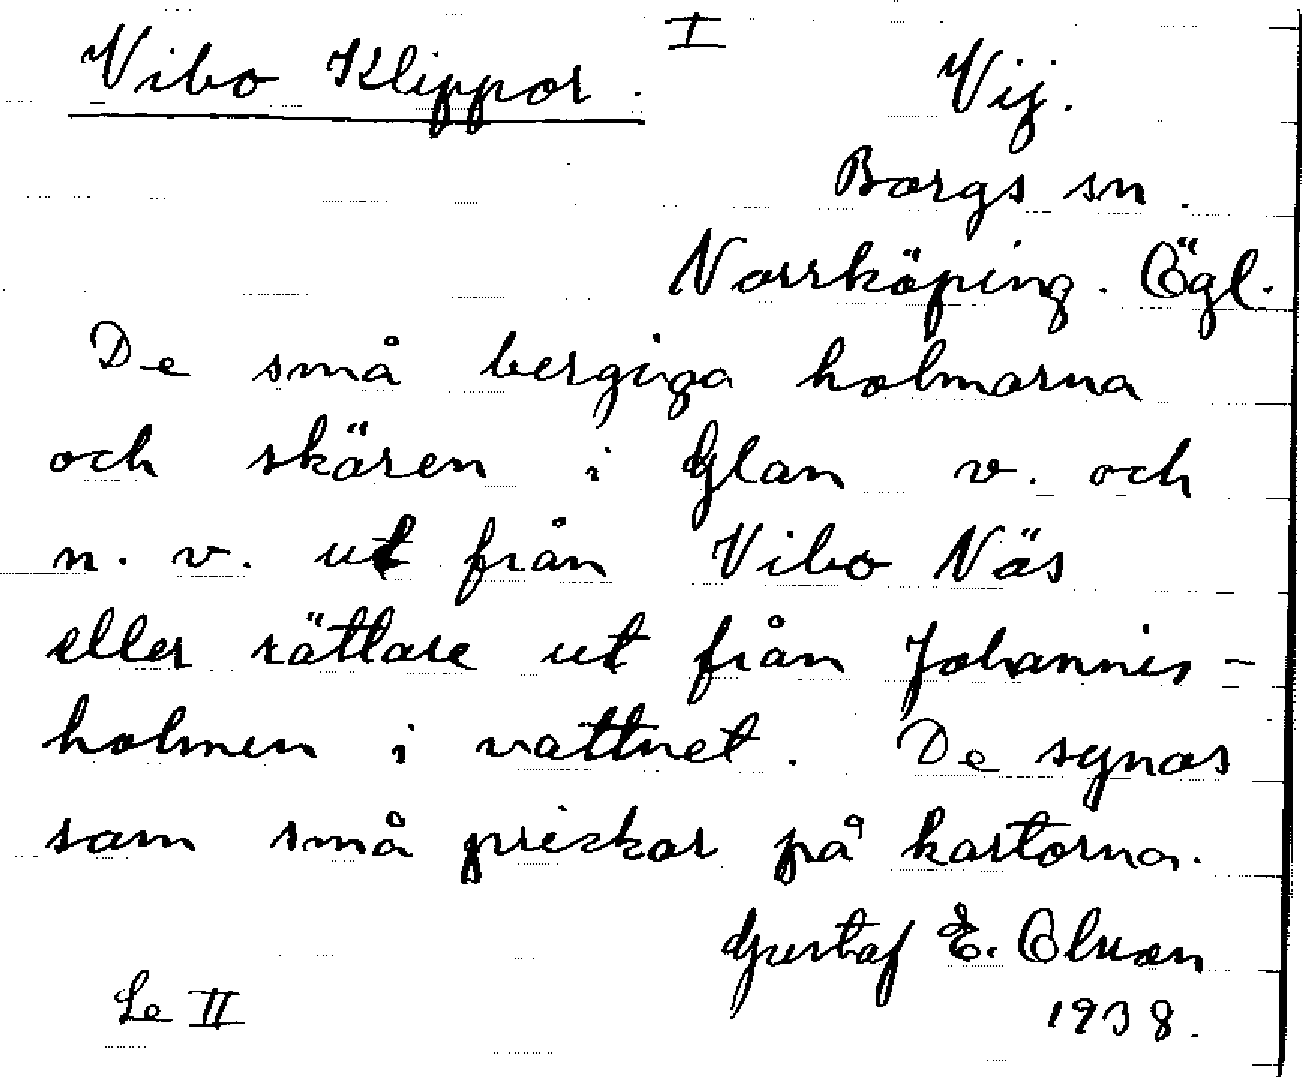 I
Vibo Klippor.
Vij.
Borgs sn.
Norrköping. Ögl.
De små bergiga holmarna
och skären i Glan v. och
n. v. ut från Vibo Näs
eller rättare ut från Johannis-
holmen i vattnet. De synas
som små prickar på kartorna.
Gustaf E.
1938.
Se II